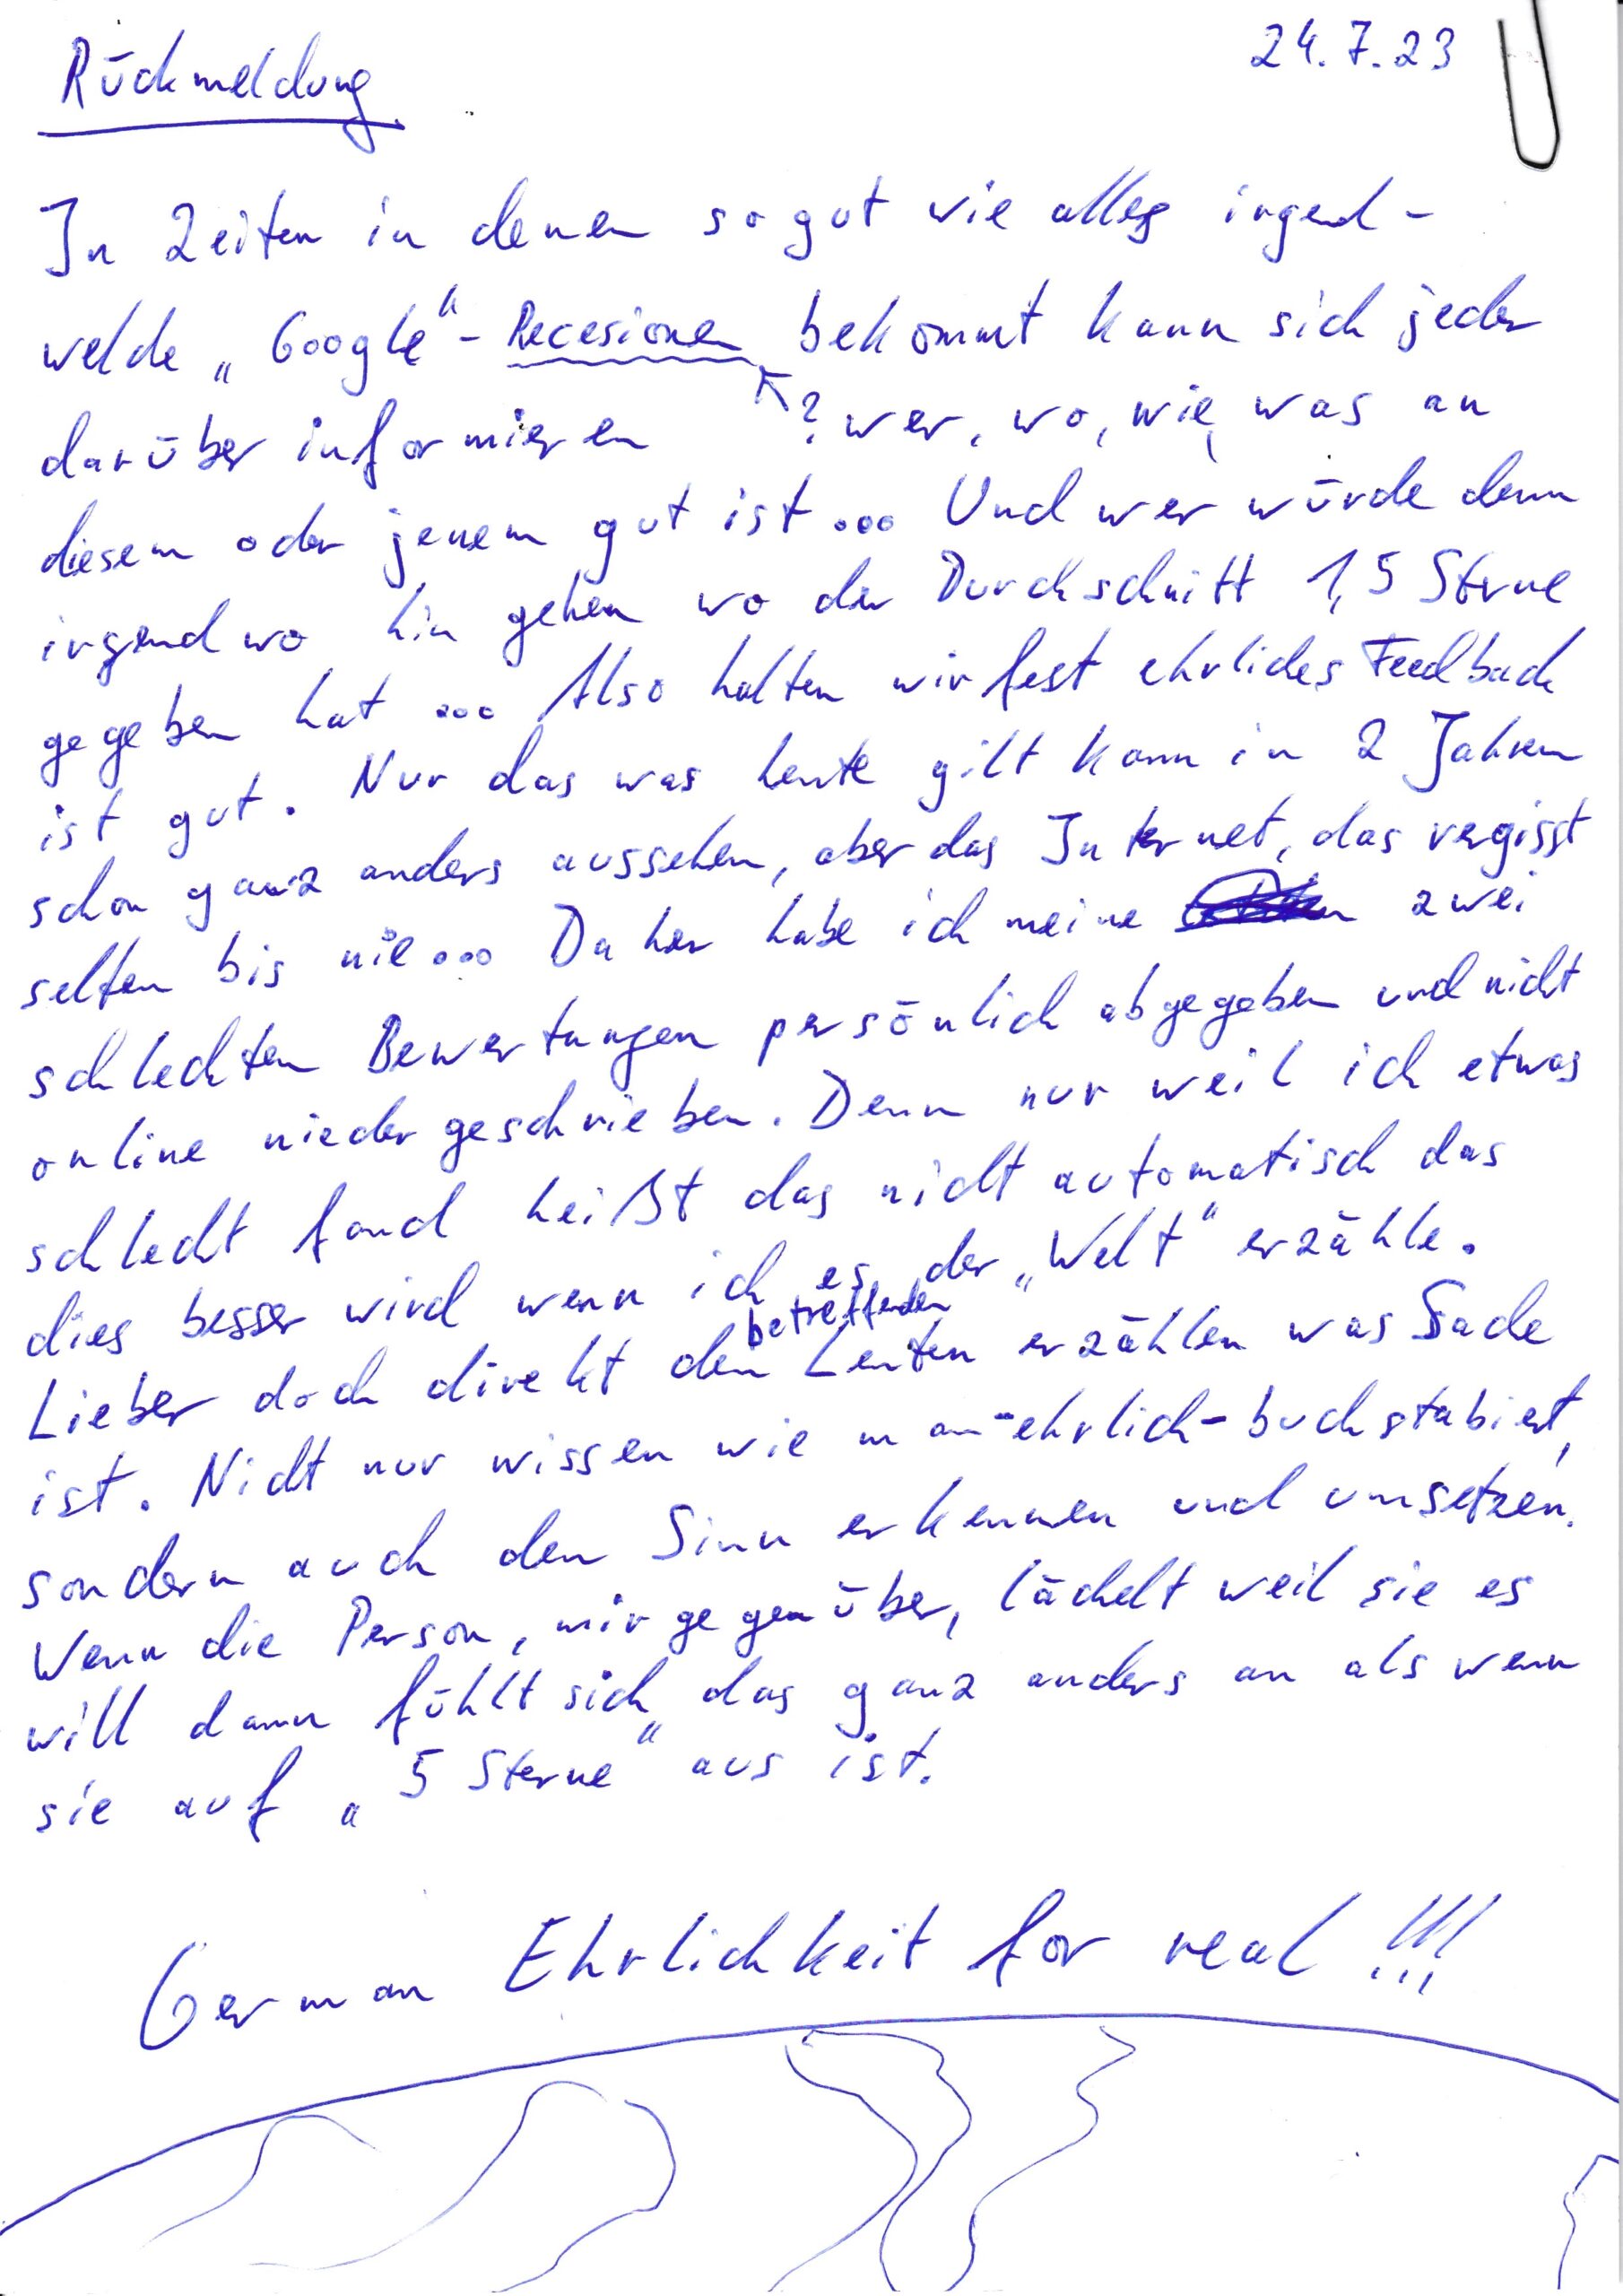 24.7.23
Rückmeldung
In Zeiten in denen so gut wie alles irgend-
welche „Google"-Recesionen bekommt kann sich jeder
darüber informieren ↖? wer, wo, wie, was an
diesem oder jenem gut ist... Und wer würde denn
irgendwo hin gehen wo der Durchschnitt 1,5 Sterne
gegeben hat ... Also halten wir fest ehrliches Feedback
ist gut. Nur das was heute gilt kann in 2 Jahren
schon ganz anders aussehen, aber das Internet, das vergisst
selten bis nie... Daher habe ich meine zwei
schlechten Bewertungen persönlich abgegeben und nicht
online niedergeschrieben. Denn nur weil ich etwas
schlecht fand heißt das nicht automatisch das
dies besser wird wenn ich es der „Welt" erzähle.
betreffenden
Lieber doch direkt den Leuten erzählen was Sache
ist. Nicht nur wissen wie man-ehrlich-buchstabiert,
sondern auch den Sinn erkennen und umsetzen.
Wenn die Person, mir gegenüber, lächelt weil sie es
will dann fühlt sich das ganz anders an als wenn
sie auf „5 Sterne" aus ist.
German Ehrlichkeit for real !!!